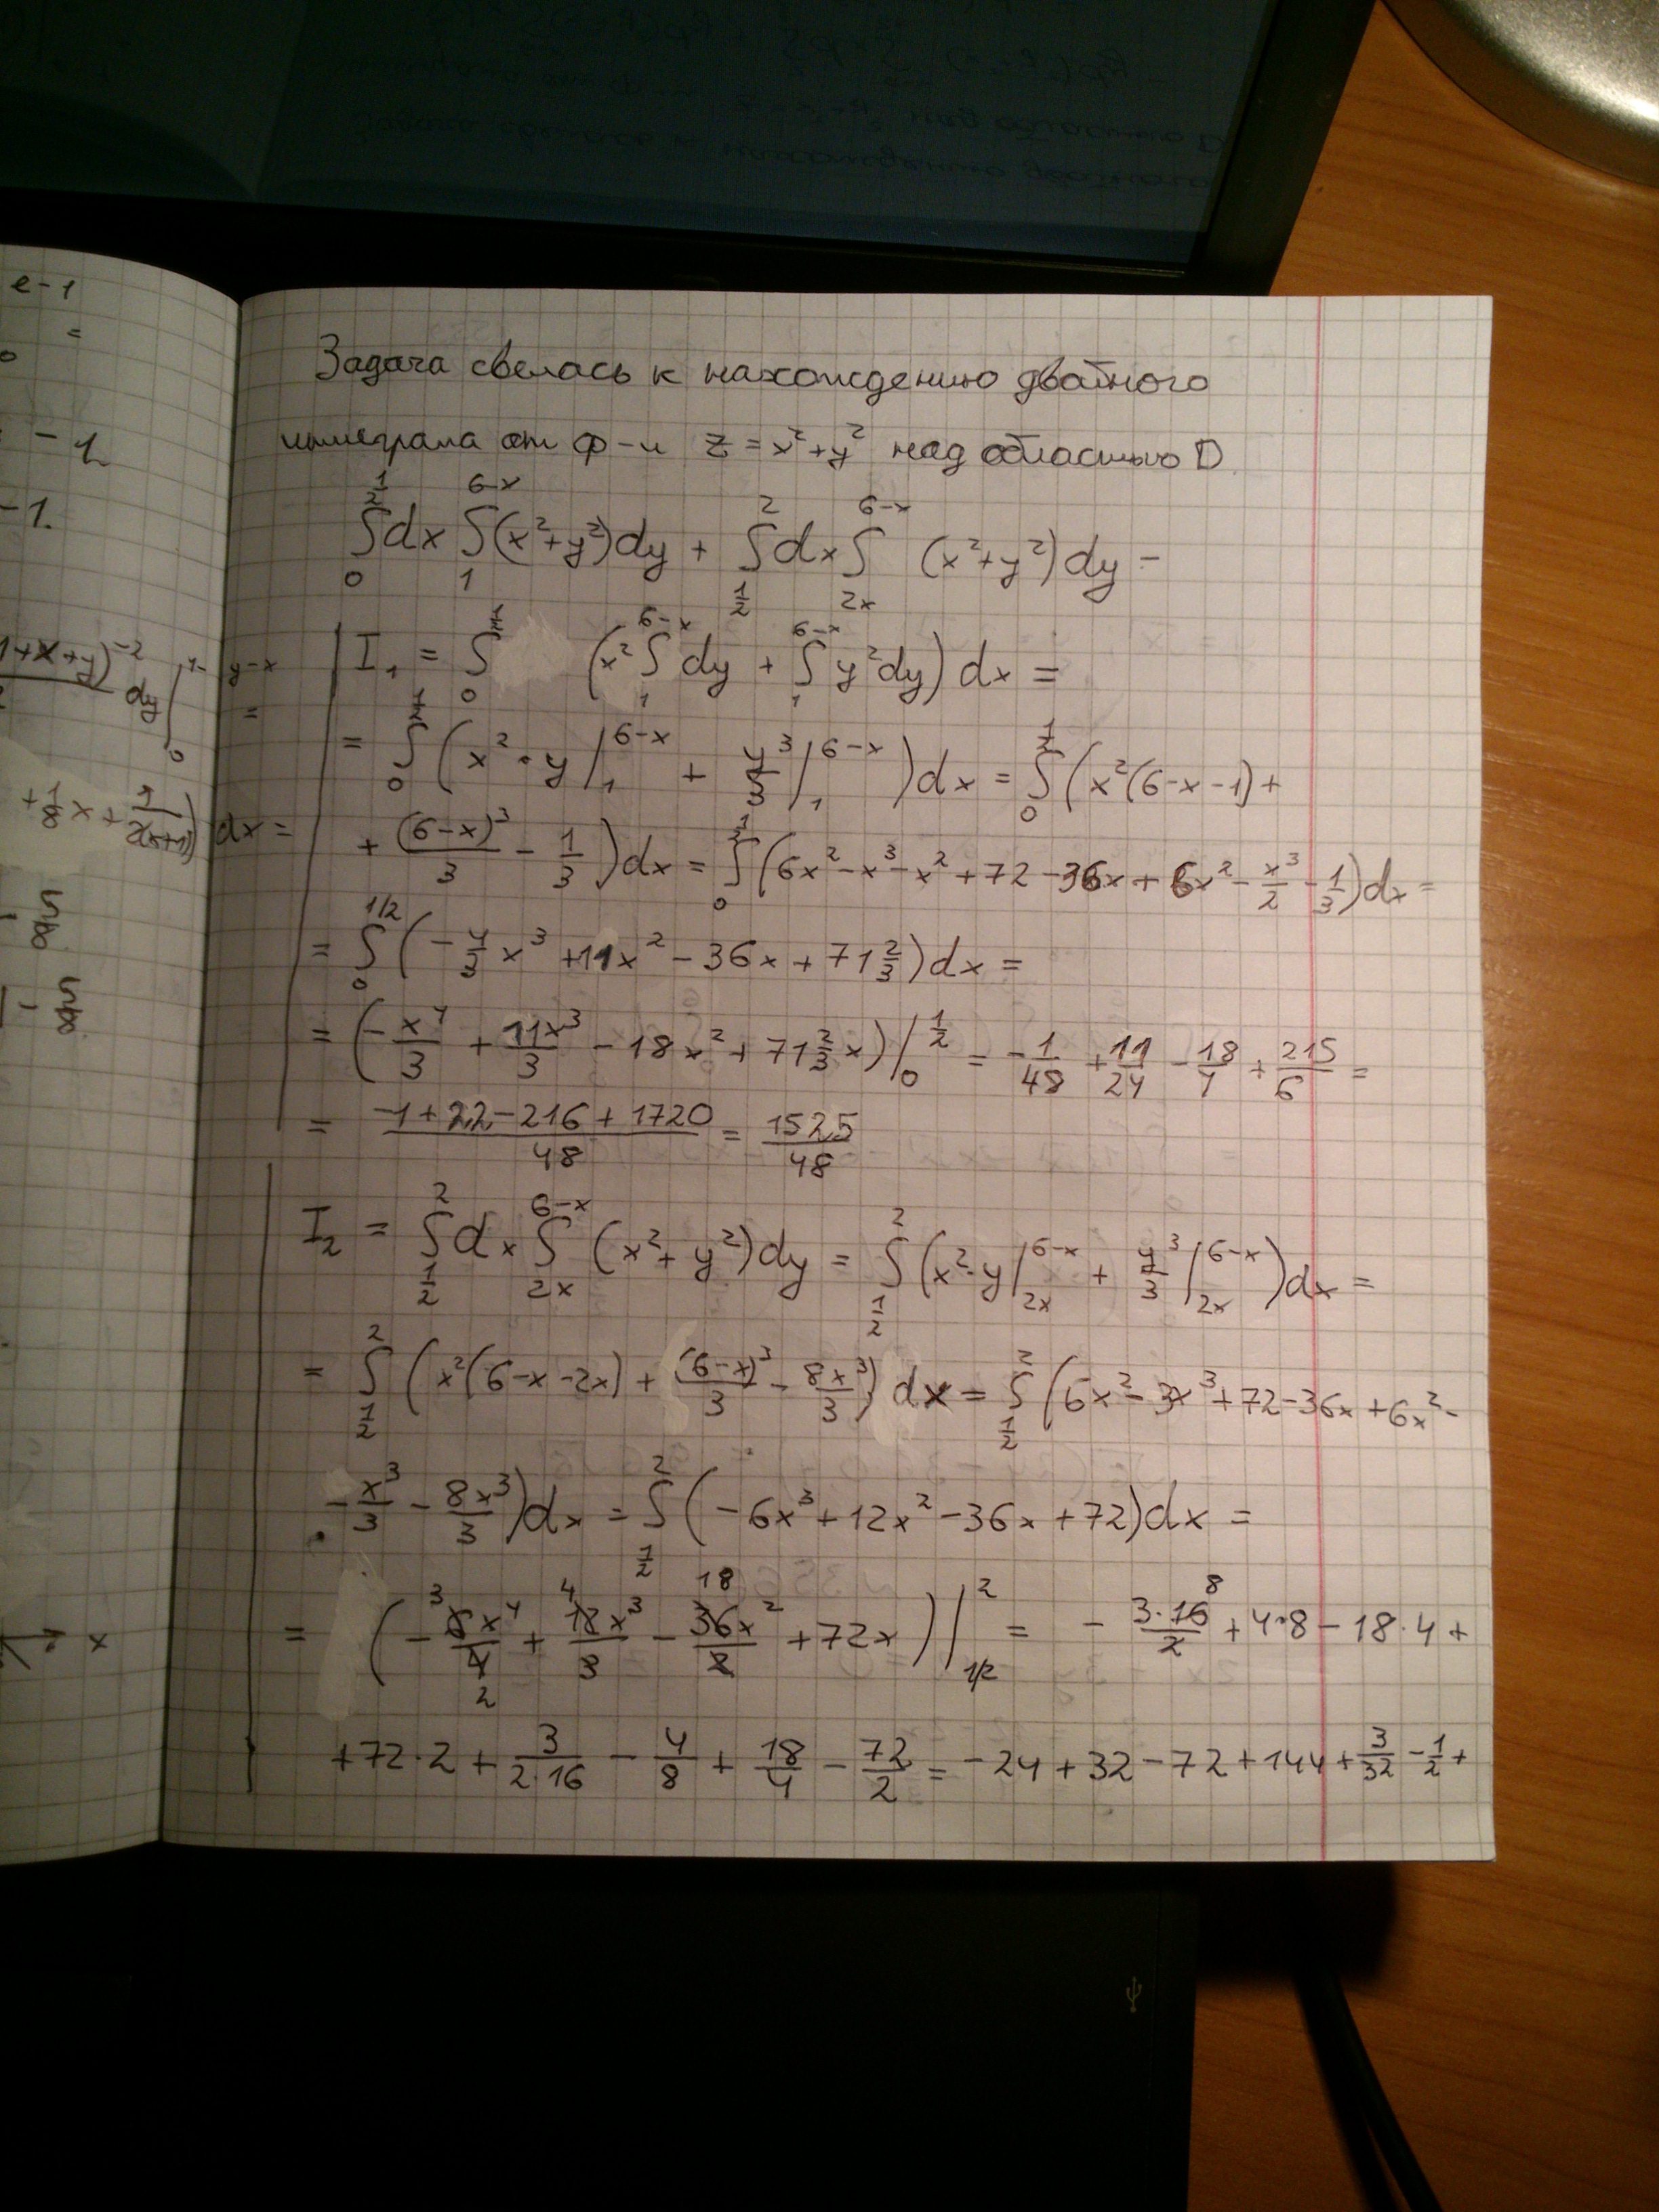 e-1
=
0
-1
-1.
1+x+y)^{-2} dy |_0^{1-y-x}
=
1/(2(x+1)) + x 1/8 + ) dx =
Задача свелась к нахождению двойного
интеграла от ф-и z = x²+y² над областью D
∫_0^{1/2} dx ∫_1^{6-x} (x²+y²)dy + ∫_{1/2}^2 dx ∫_{2x}^{6-x} (x²+y²)dy -
I₁ = ∫_0^{1/2} (x² ∫_1^{6-x} dy + ∫_1^{6-x} y²dy) dx =
= ∫_0^{1/2} (x²·y |_1^{6-x} + y³/3 |_1^{6-x}) dx = ∫_0^{1/2} (x²(6-x-1)+
+ (6-x)³/3 - 1/3)dx = ∫_0^{1/2} (6x²-x³-x²+72-36x+6x²- x³/2 - 1/3)dx =
= ∫_0^{1/2} (- 4/3 x³ + 11x² - 36x + 71 2/3)dx =
= (- x⁴/3 + 11x³/3 - 18x² + 71 2/3 x) |_0^{1/2} = - 1/48 + 11/24 - 18/4 + 215/6 =
= (-1+22-216+1720)/48 = 1525/48
I₂ = ∫_{1/2}^2 dx ∫_{2x}^{6-x} (x²+y²)dy = ∫_{1/2}^2 (x²·y |_{2x}^{6-x} + y³/3 |_{2x}^{6-x})dx =
= ∫_{1/2}^2 (x²(6-x-2x) + (6-x)³/3 - 8x³/3) dx = ∫_{1/2}^2 (6x²-3x³+72-36x+6x²-
- x³/3 - 8x³/3)dx = ∫_{1/2}^2 (-6x³+12x²-36x+72)dx =
= (- 6x⁴/4 + 12x³/3 - 36x²/2 + 72x) |_{1/2}^2 = - 3·16/2 + 4·8 - 18·4 +
+72·2 + 3/(2·16) - 4/8 + 18/4 - 72/2 = -24+32-72+144+ 3/32 - 1/2 +
x